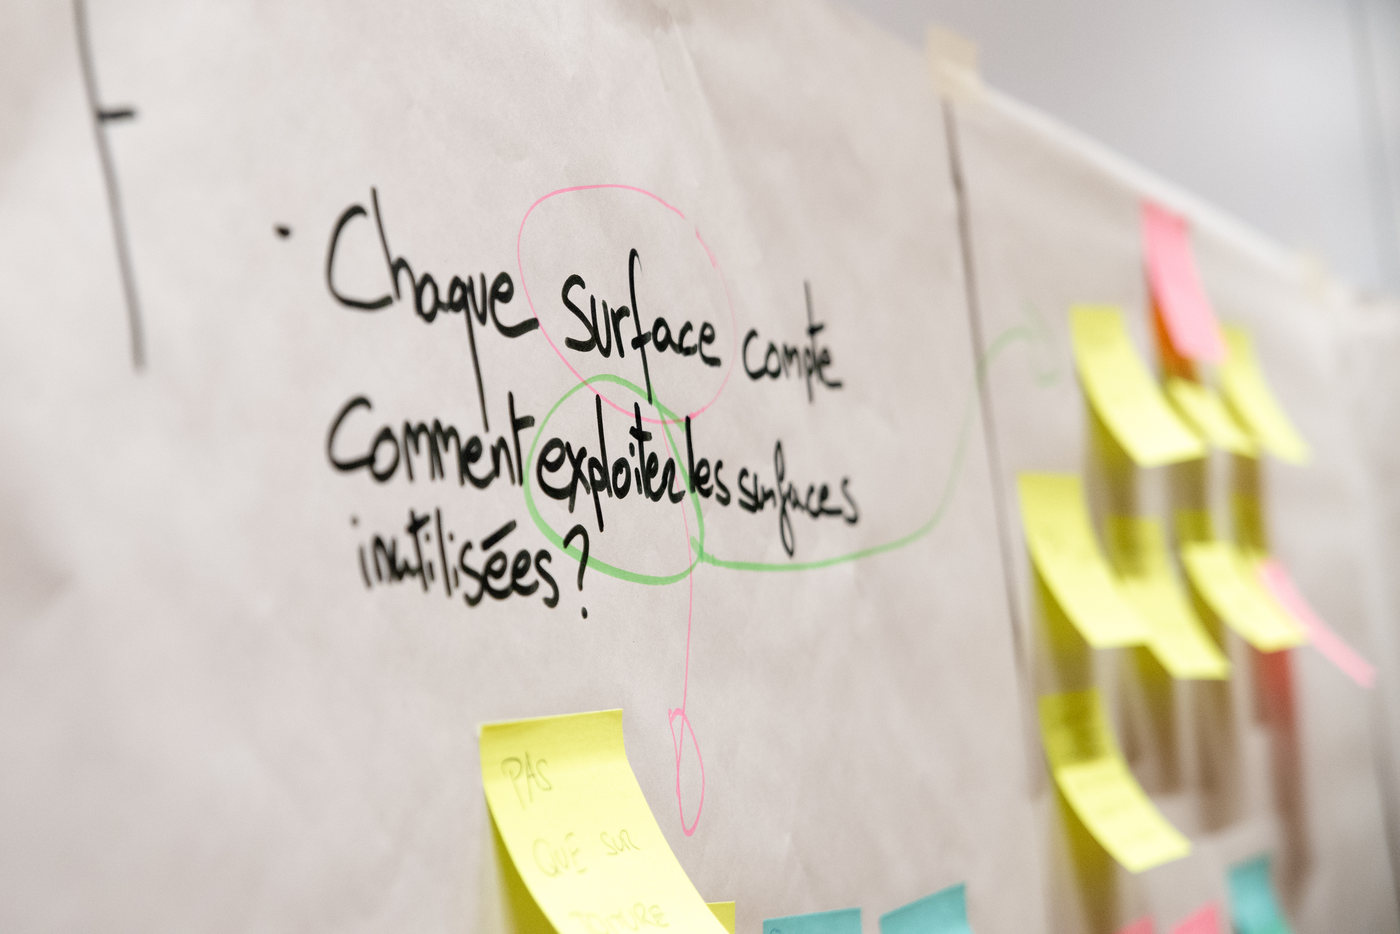 Chaque surface compte
Comment exploiter les surfaces
inutilisées ?
PAS
QUE SUR